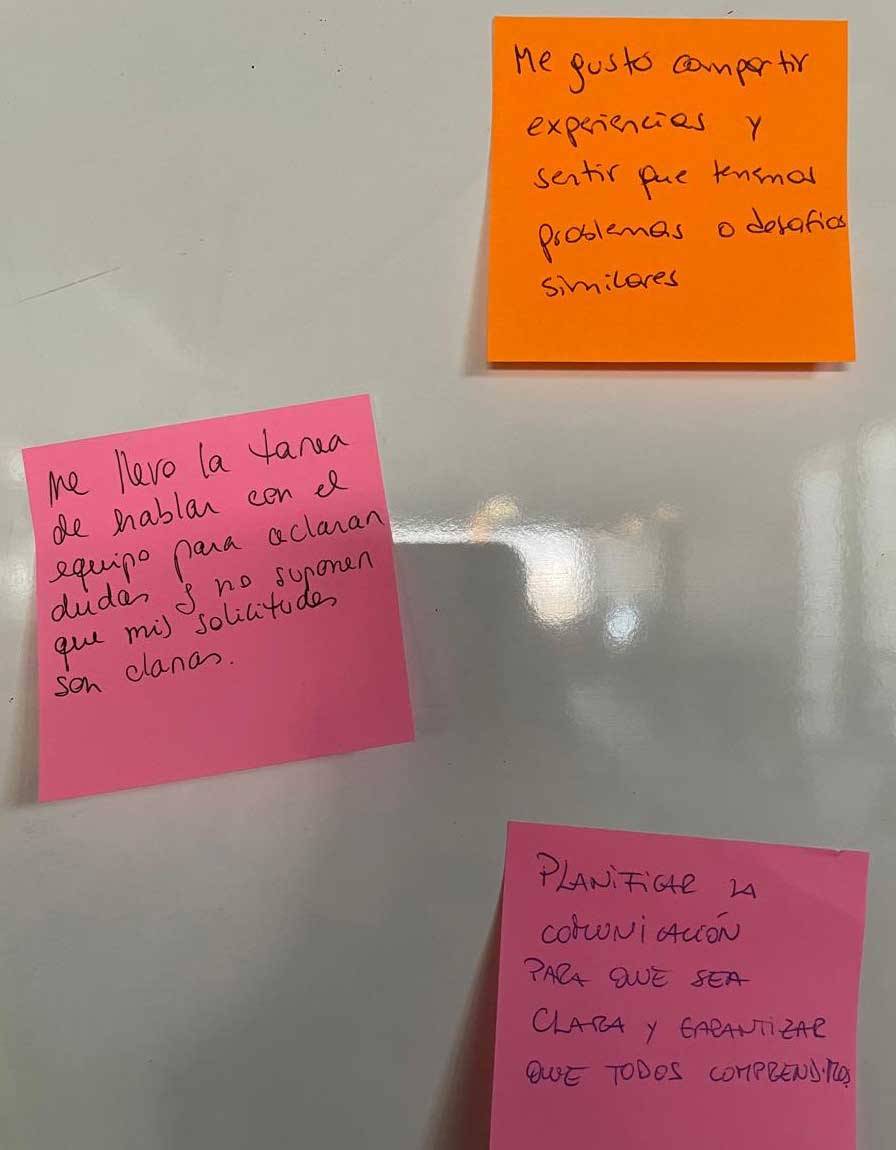 Me gustó compartir
experiencias y
sentir que tenemos
problemas o desafios
similares
me llevo la tarea
de hablar con el
equipo para aclarar
dudas y no suponer
que mis solicitudes
son claras.
PLANiFiCAR LA
COMUNiCACiÓN
PARA QUE SEA
CLARA y GARANTiZAR
QUE TODOS COMPRENDiMOS